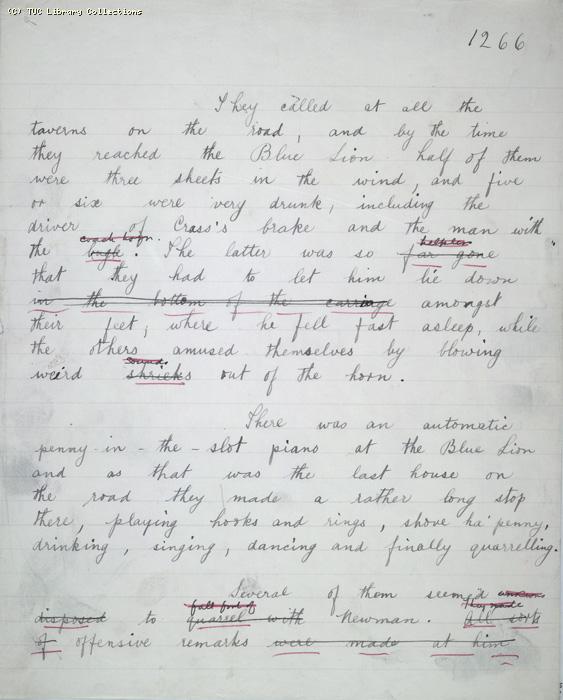 (C) TUC Library Collections
1266
They called at all the
taverns on the road, and by the time
they reached the Blue Lion half of them
were three sheets in the wind, and five
or six were very drunk, including the
driver of Crass's brake and the man with
coach horn.
the bugle. The latter was so far gone
that they had to let him lie down
in the bottom of the carriage amongst
their feet, where he fell fast asleep, while
the others amused themselves by blowing
sound
weird shrieks out of the horn.
There was an automatic
penny-in-the-slot piano at the Blue Lion
and as that was the last house on
the road they made a rather long stop
there, playing hooks and rings, shove ha'penny,
drinking, singing, dancing and finally quarrelling.
Several of them seemed
fall foul of They made
disposed to quarrel with Newman. All sorts
of offensive remarks were made at him